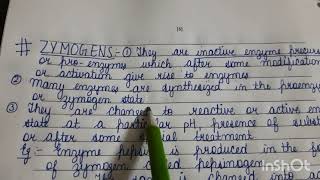 # ZYMOGENS = ① They are inactive enzyme precur
or pro-enzymes which after some modification
or activation give rise to enzymes
② many enzymes are synthesized in the proenzy
or zymogen state
③ They are changed to reactive or active en
state at a particular pH, presence of subst
or after some treatment
Eg:- Enzyme pepsin is produced in the fo
of zymogen called pepsinogen
is changed into ac
InShOt